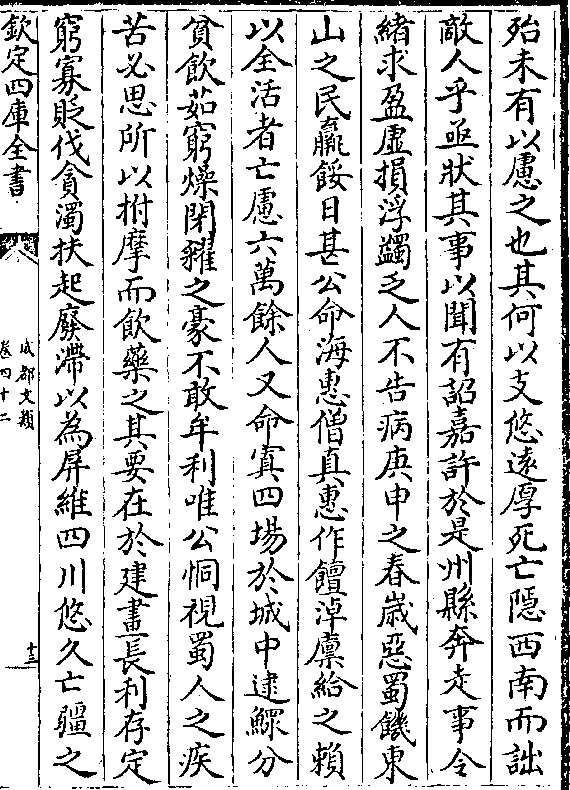 殆未有以慮之也其何以支悠遠厚死亡隱西南而詘
敵人乎亟狀其事以聞有詔嘉許於是州縣奔走事令
緒求盈虛損浮蠲乏人不告病庚申之春歲惡蜀饑東
山之民羸餒日甚公命海惠僧真惠作饘淖廩給之賴
以全活者亡慮六萬餘人又命寘四場於城中逮鰥分
貧飲茹窮燥閉糴之豪不敢牟利唯公恫視蜀人之疾
苦必思所以拊摩而飲藥之其要在於建畫長利存定
窮寡貶伐貪濁扶起廢滯以為屏維四川悠久亡疆之
欽定四庫全書
成都文類
卷四十二
十三